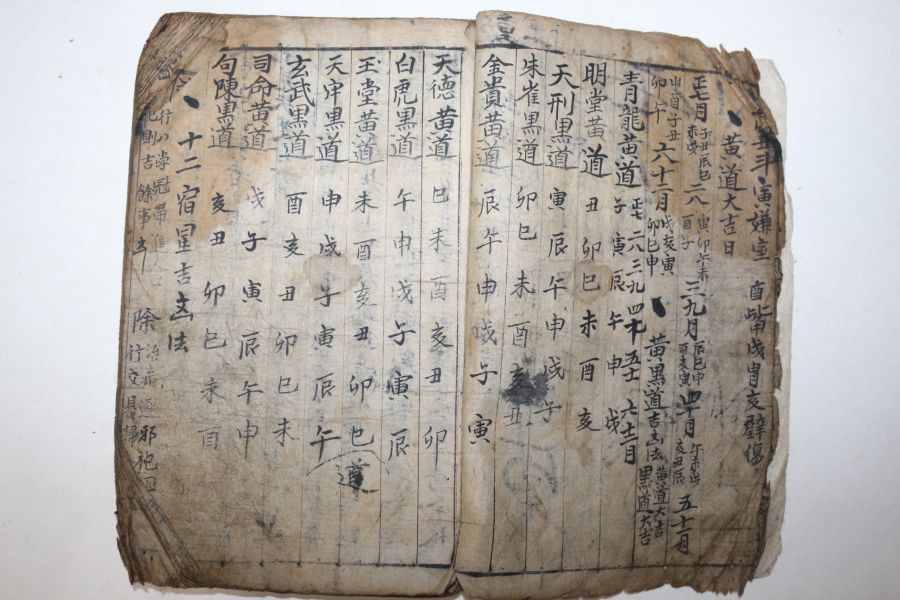 丑斗寅嫌室 酉觜戌胃亥壁傷
黄道大吉日
正七月 子丑辰巳未戌 二八 寅卯午未酉子 三九月 辰巳申酉亥寅 四十月 午未戌亥丑辰 五十一月
申酉子丑卯午 六十二月 戌亥寅卯巳申 黄黒道吉凶法 黄道大吉黒道大吉
青龍黄道 正七 二八 三九 四十 五十一 六十二月
子寅辰午申戌
明堂黄道 丑卯巳未酉亥
天刑黒道 寅辰午申戌子
朱雀黒道 卯巳未酉亥丑
金貴黄道 辰午申戌子寅
天德黄道 巳未酉亥丑卯
白虎黒道 午申戌子寅辰
玉堂黄道 未酉亥丑卯巳
天牢黒道 申戌子寅辰午
道
玄武黒道 酉亥丑卯巳未
司命黄道 戌子寅辰午申
句陳黒道 亥丑卯巳未酉
十二宿星吉凶法
冠帶 吉餘事 除 治病 邪祀 行交